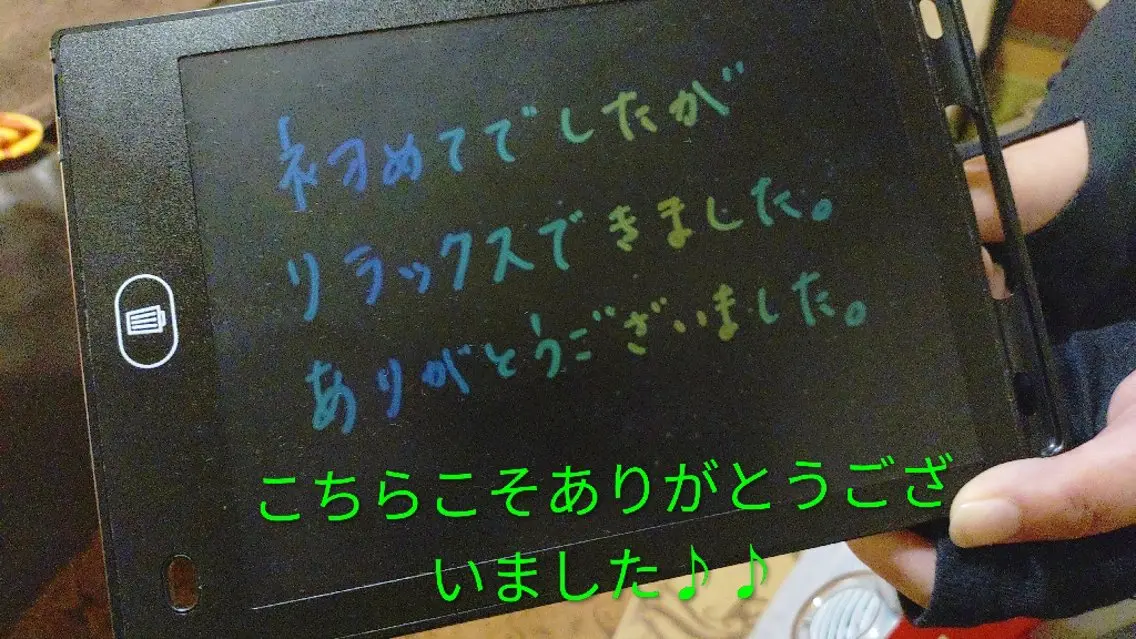 初めてでしたが
リラックスできました。
ありがとうございました。
こちらこそありがとうござ
いました♪♪